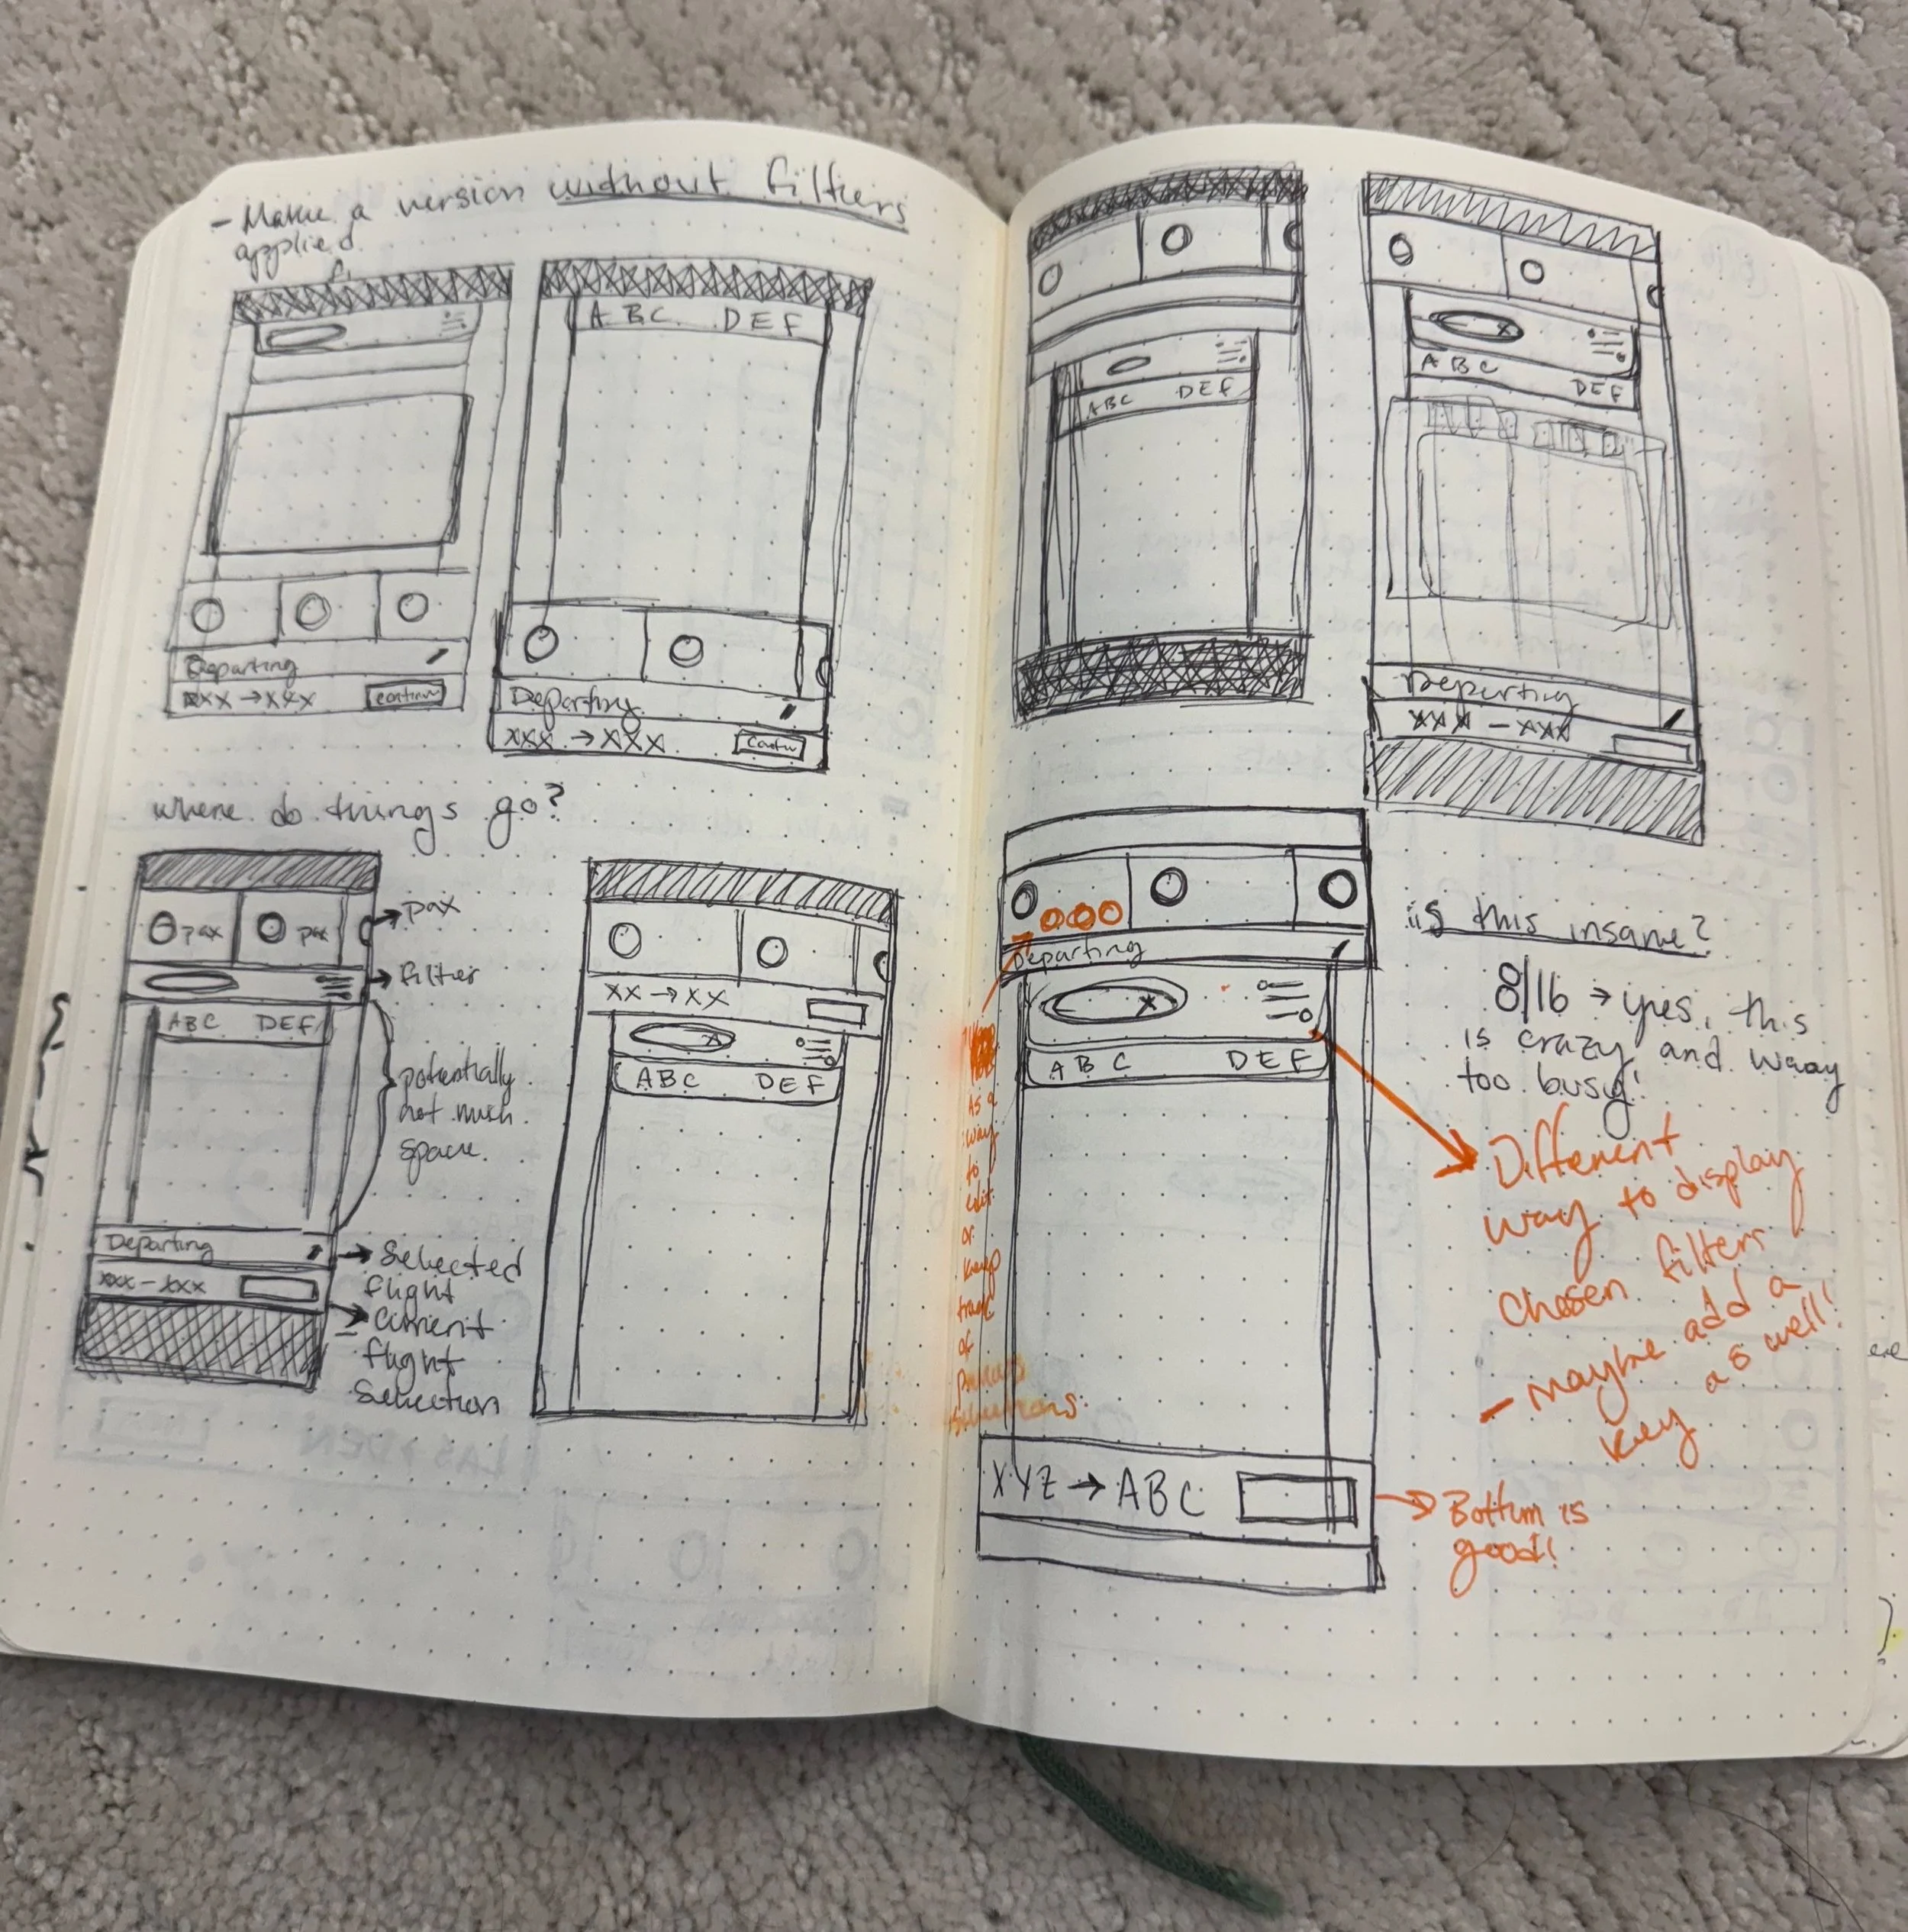 - Make a version without filters
applied.
ABC DEF
Departing
XXX → XXX
Departing
XXX → XXX
where do things go?
pax
pax
→ pax
→ filter
ABC DEF
potentially
not much
space.
Departing
XXX - XXX
→ Selected
flight
→ Current
flight
Selection
XX → XX
X
ABC DEF
ABC DEF
X
ABC DEF
Departing
XXX - XXX
Departing
X
ABC DEF
XYZ → ABC
is this insane?
8/16 → yes, this
is crazy and waay
too busy!
Different
way to display
chosen filters
- maybe add a
key as well!
As a
way
to
edit
or
keep
track
of
→ Bottom is
good!